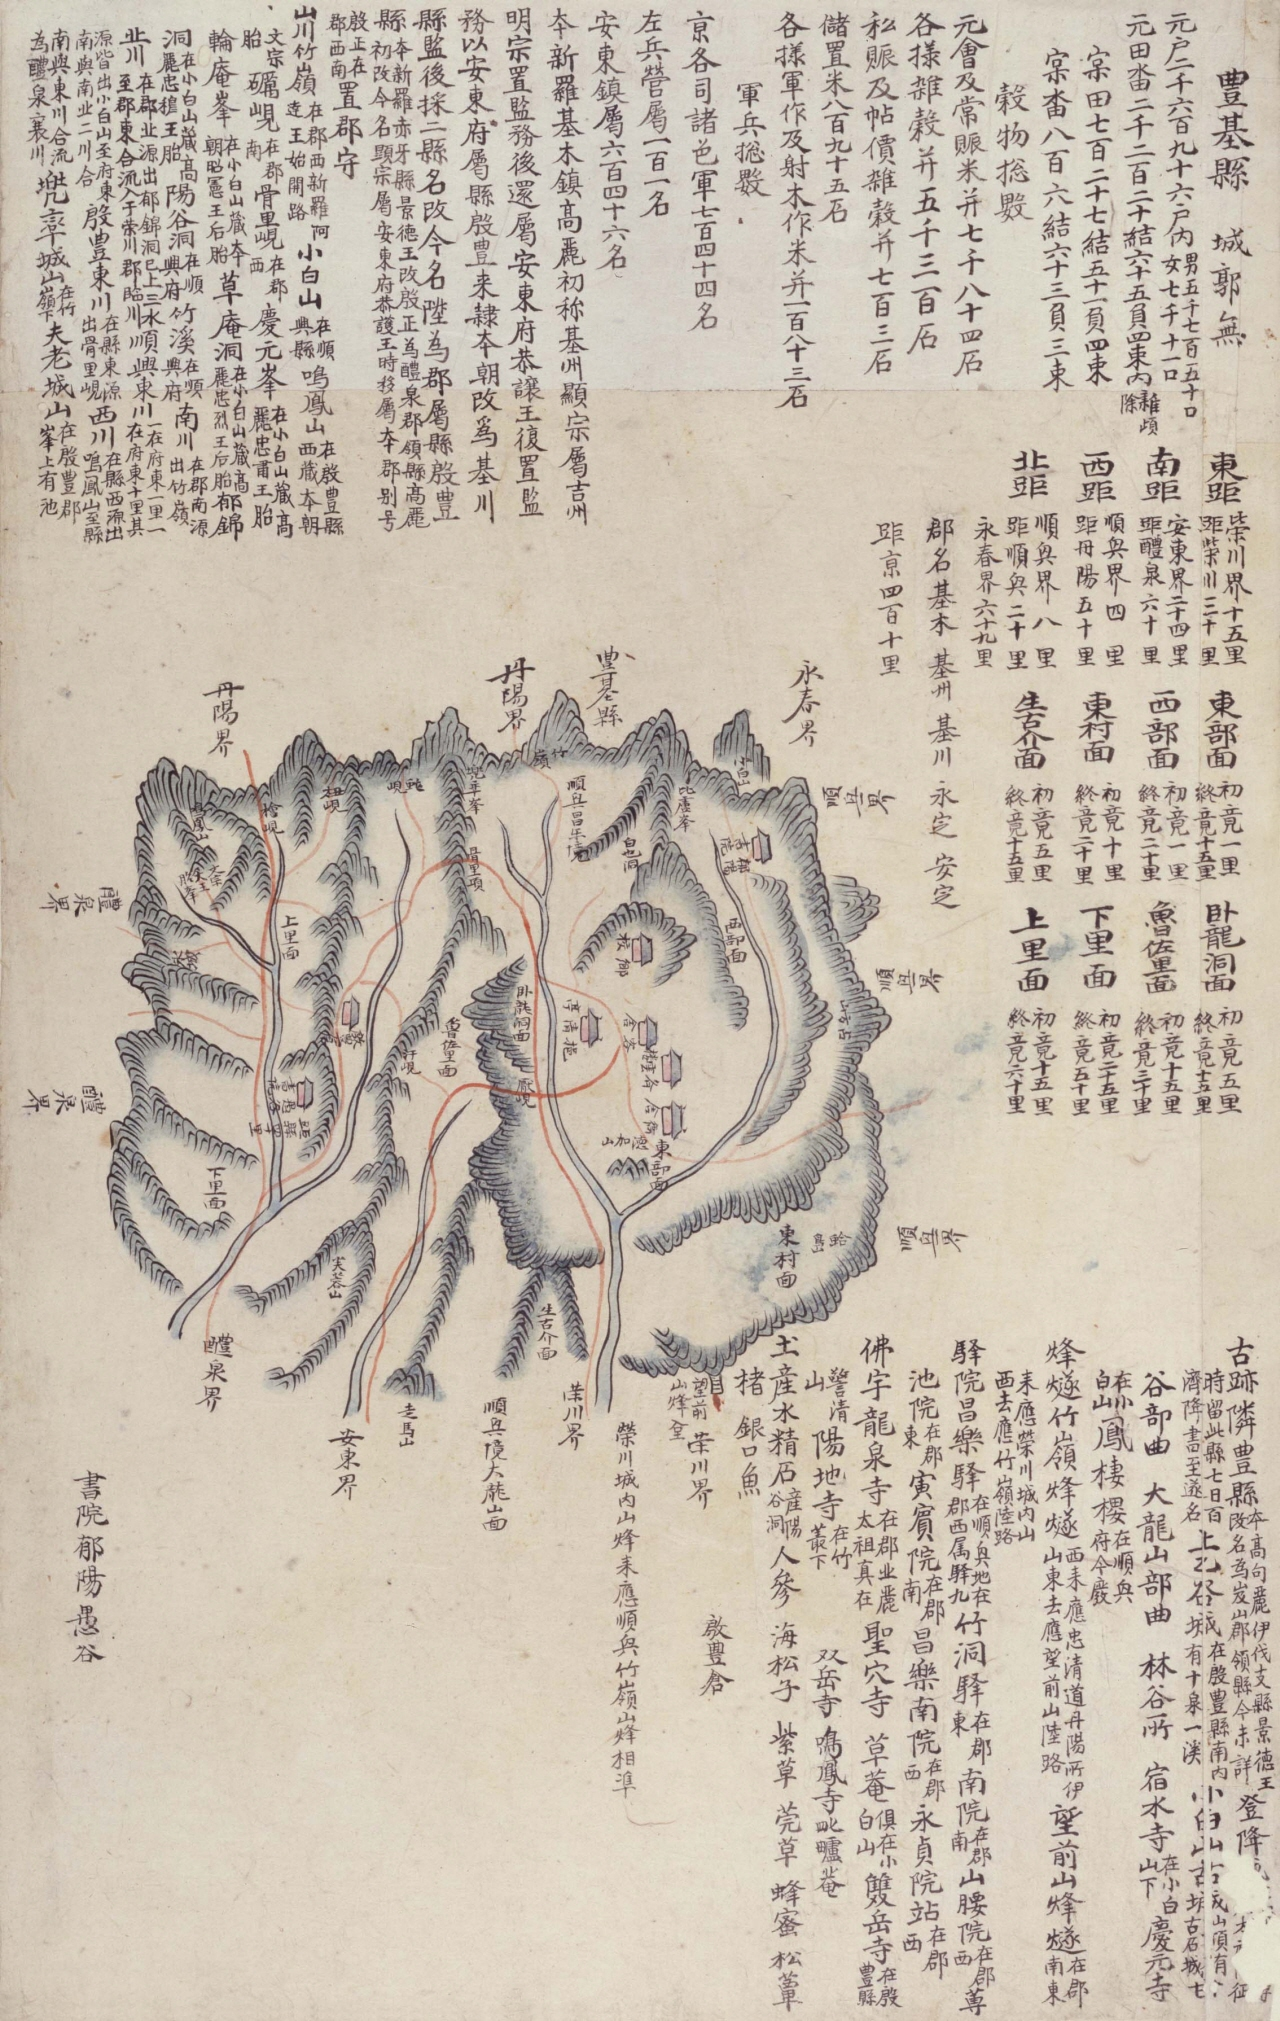 豊基縣 城郭無
元戶二千六百九十六戶內男五千七百五十口女七千十一口
元田畓二千二百二十結六十五負四束內雜頉除
宲田七百二十七結五十一負四束
宲畓八百六結六十三負三束
穀物摠數
元會及常賑米并七千八十四石
各㨾雜穀并五千三百石
私賑及帖價雜穀并七百三石
儲置米八百九十五石
各㨾軍作及射木作米并一百八十三石
軍兵摠數
京各司諸色軍七百四十四名
左兵營屬一百一名
安東鎮屬六百四十六名
本新羅基木鎮高麗初称基州顯宗屬吉州
明宗置監務後還屬安東府恭讓王復置監
務以安東府屬縣殷豊来隷本朝改爲基川
縣監後採二縣名改今名陞爲郡屬縣殷豊
縣本新羅赤牙縣景德王改殷正爲醴泉郡領縣高麗
初改今名顯宗屬安東府恭讓王時移屬本郡别号
殷正在郡西南置郡守
山川竹嶺在郡西新羅阿達王始開路小白山在順興縣鳴鳳山在殷豊縣西藏本朝
文宗胎礪峴在郡南骨里峴在郡西慶元峯在小白山藏高麗忠肅王胎
輪庵峯在小白山藏本朝昭憲王后胎草庵洞在小白山藏高麗忠烈王后胎郁錦
洞在小白山藏高麗忠穆王胎陽谷洞在順興府竹溪在順興府南川在郡南源出竹嶺
北川在郡北源出郁錦洞已上三水至郡東合流入于榮川郡臨川順興東川一在府東一里一在府東十里其
源皆出小白山至府東南與南北二川合殷豊東川在縣東源出骨里峴西川在縣西源出鳴鳳山至縣
南與東川合流為醴泉襄川兜率城山在竹嶺下夫老城山在殷豊郡峯上有池
東距榮川界十五里距榮川三十里
南距安東界二十四里距醴泉六十里
西距順興界四里距丹陽五十里
北距順興界八里距順興二十里
永春界六十九里
郡名基木 基州 基川 永定 安定
距京四百十里
東部面初竟一里終竟十五里
西部面初竟一里終竟二十里
東村面初竟十里終竟二十里
生古介面初竟五里終竟十五里
卧龍洞面初竟五里終竟十五里
魯佐里面初竟十五里終竟三十里
下里面初竟二十五里終竟五十里
上里面初竟十五里終竟六十里
豊基縣
永春界
丹陽界
丹陽界
順興界
順興界
順興界
醴泉界
醴泉界
醴泉界
安東界
榮川界
榮川界
小白山
毗盧峯
竹嶺
順興昌樂境
白也洞
兜率峯
骨里項
杻峴
檜峴
鳴鳳山
上里面
下里面
西部面
東部面
東村面
卧龍洞面
魯佐里面
生古介面
鄕校
客舍
衙舍
德加山
芙蓉山
走馬山
順興境大龍山面
望前山烽臺
榮川城内山烽来應順興竹嶺山烽相準
殷豊倉
書院郁陽愚谷
古跡隣豊縣本高句麗伊伐支縣景德王改名為岌山郡領縣今未詳登降
時留此縣七日百濟降書至遂名上乙谷城在殷豊縣南内城有十泉一溪小白山古城山頂有
谷部曲 大龍山部曲 林谷所 宿水寺在小白山下慶元寺
在小白山鳳棲樓在順興府今廢
烽燧竹嶺烽燧西来應忠清道丹陽所伊山東去應望前山陸路望前山烽燧在郡南東
来應榮川城内山西去應竹嶺陸路
驛院昌樂驛在順興地在郡西属驛九竹洞驛在郡東南院在郡南山腰院在郡西蓴
池院在郡東寅賓院在郡南昌樂南院在郡西永貞院站在郡西
佛宇龍泉寺在郡北麗太祖真在聖穴寺 草菴俱在小白山雙岳寺在殷豊縣
警清山陽地寺在竹叢下双岳寺 鳴鳳寺毗曥菴
土産水精石産陽谷洞人參 海松子 紫草 莞草 蜂蜜 松蕈
楮 銀口魚